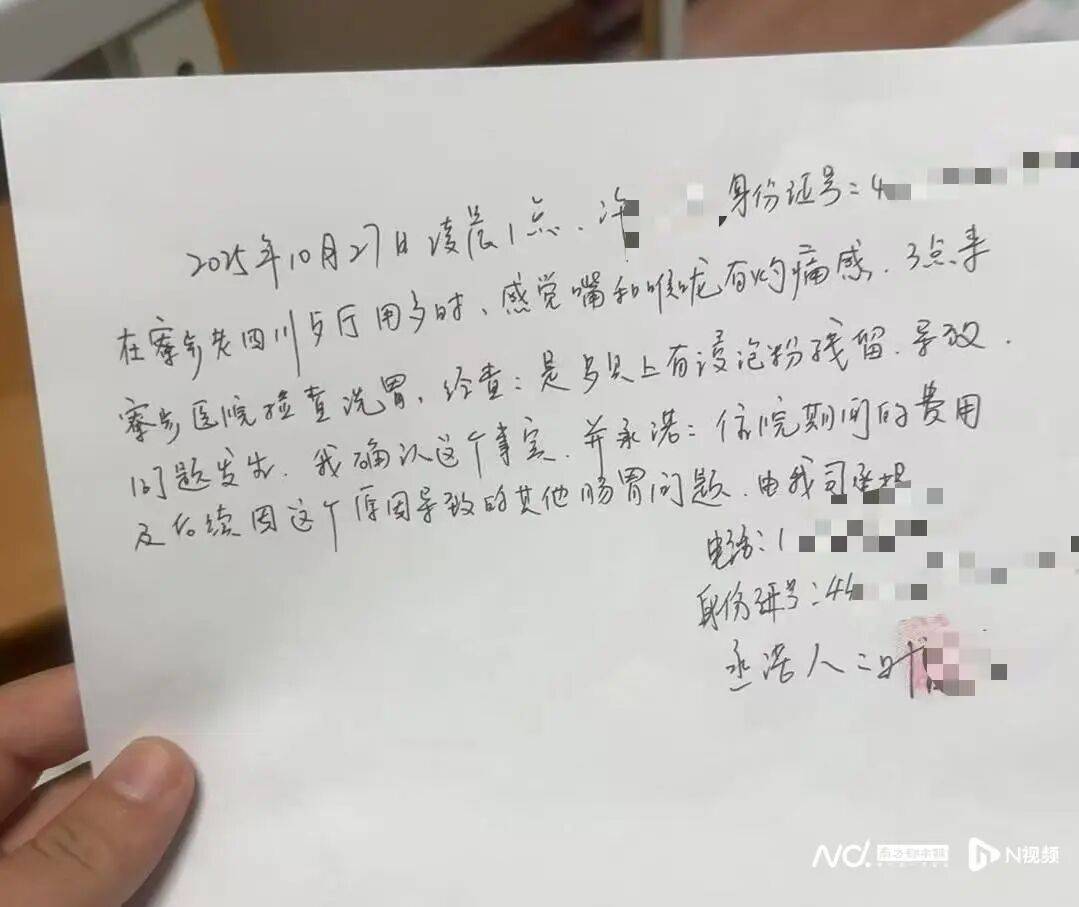 2025年10月27日凌晨1点、许 身份证号:4
在寮步老四川歺厅用歺时、感觉嘴和喉咙有灼痛感.3点来
寮步医院检查洗胃、经查:是歺具上有浸泡粉残留.导致.
问题发生.我确认这个事实.并承诺:住院期间的费用
及后续因这个原因导致的其他肠胃问题.由我司承担
电话:1
身份证号:44
承诺人:叶
N视频